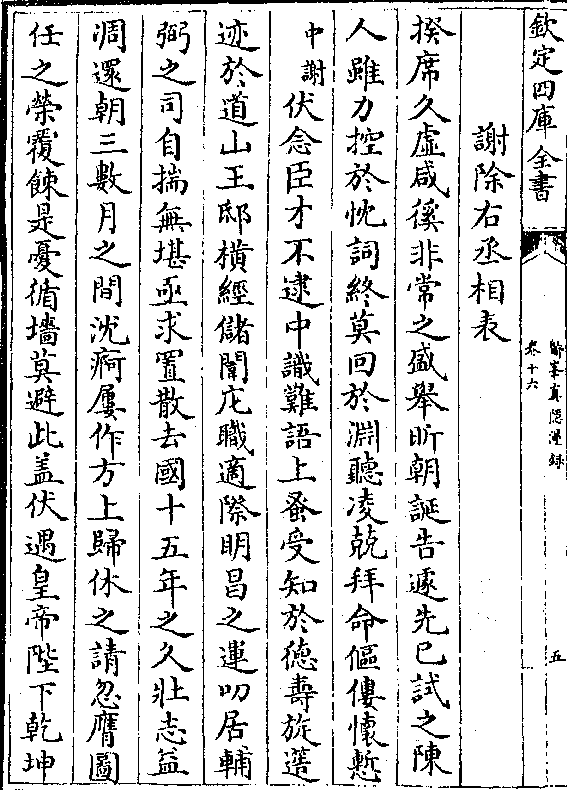 欽定四庫全書
鄮峯真隱漫錄
卷十六
五
謝除右丞相表
揆席久虛咸徯非常之盛舉昕朝誕告遽先已試之陳
人雖力控於忱詞終莫回於淵聽凌兢拜命傴僂懷慙
中謝伏念臣才不逮中識難語上蚤受知於德壽旋簉
迹於道山王邸橫經儲闈庀職適際明昌之運叨居輔
弼之司自揣無堪亟求置散去國十五年之久壯志益
凋還朝三數月之間沈痾屢作方上歸休之請忽膺圖
任之榮覆餗是憂循墻莫避此盖伏遇皇帝陛下乾坤